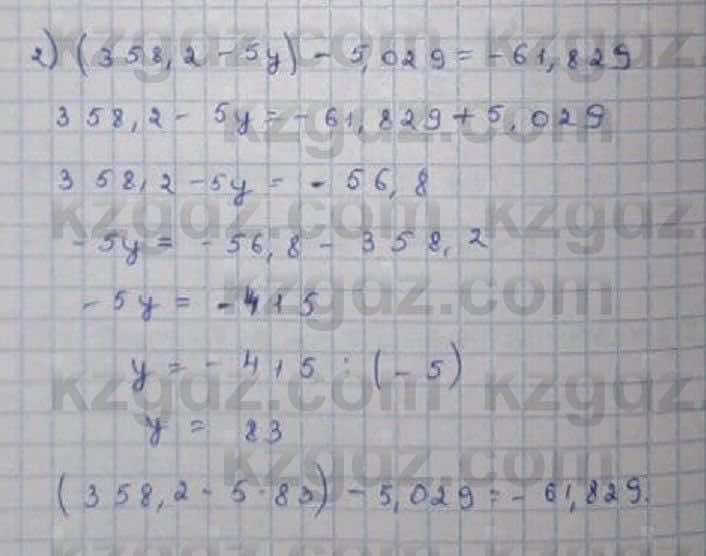 2) (358,2 - 5y) - 5,029 = - 61,829
358,2 - 5y = - 61,829 + 5,029
358,2 - 5y = - 56,8
- 5y = - 56,8 - 358,2
- 5y = - 415
y = - 415 : (- 5)
y = 83
(358,2 - 5 · 83) - 5,029 = - 61,829.
kzgdz.com kzgdz.com
kzgdz.com
kzgdz.com kzgdz.com
kzgdz.com
kzgdz.com kzgdz.com
kzgdz.com